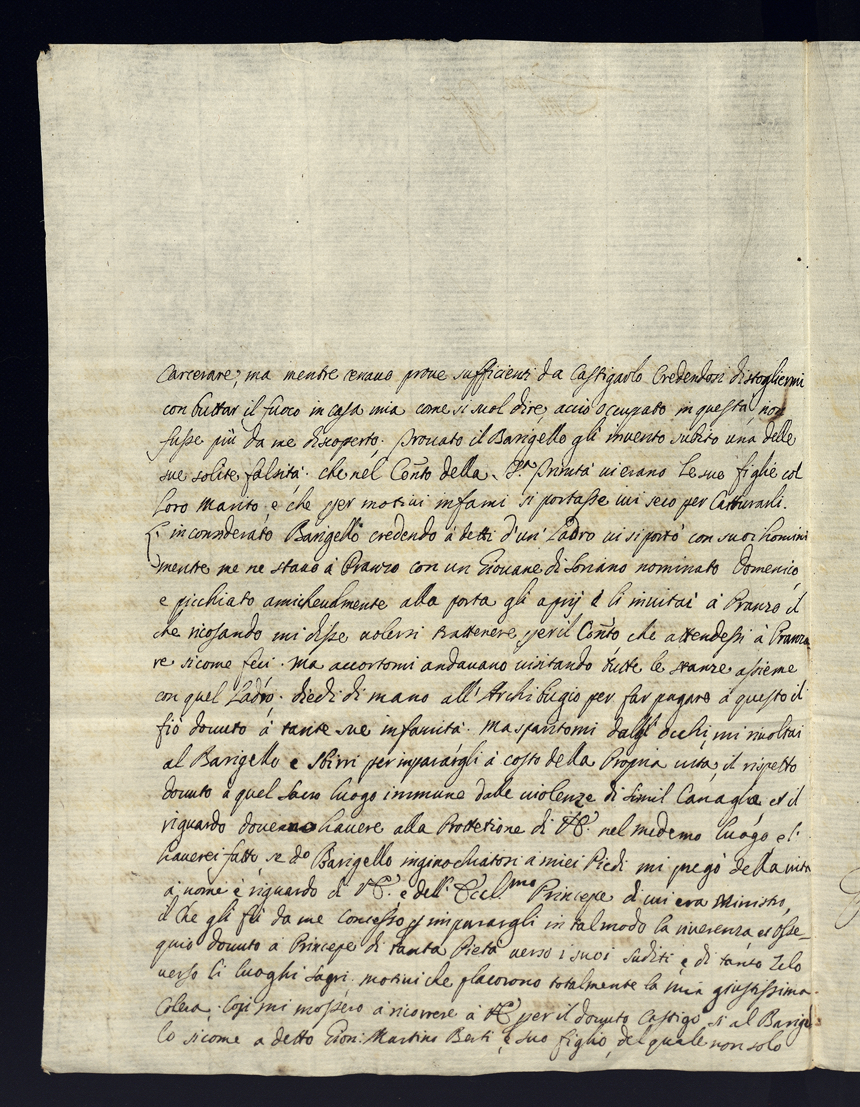 Carcerare; ma mentre erauo proue sufficienti da Castigarlo Credendosi distogliermi
con buttar il fuoco in casa mia come si suol dire, acciò occupato in questa, non
fusse più da me discoperto. Prouato il Barigello gli inuentò subito una delle
sue solite falsità. che nel Conto della S.ma Trinità ui erano le sue figlie col
loro Marito, e che per motiui infami si portasse iui seco per Catturarli.
L' inconsiderato Barigello credendo à detti d'un' Ladro ui si portò con suoi homini
mentre me ne stauo à Pranzo con un Giouane di Soriano nominato Domenico,
e picchiato amicheuolmente alla porta gli aprij e li inuitai à Pranzo il
che ricosando mi disse uolersi trattenere per il Conto che attendessi à Pranza
re sicome feci. Ma accortomi andauano uisitando tutte le stanze assieme
con quel Ladro. diedi di mano all' Archibugio per far pagare a questo il
fio douuto à tante sue infamità. Ma sparitomi dagl' occhi, mi riuoltai
al Barigello e Sbirri per imparargli à costo della Propria uita, il rispetto
douuto à quel Sacro luogo immune dalle uiolenze di simil Canaglia et il
riguardo doueano hauere alla Protetione di VE. nel medemo luogo, e l'
hauerei fatto se do Barigello inginochiatosi a miei Piedi mi pregò della uita
à nome e riguardo di VE. e dell' Eccel.mo Principe di cui era Ministro,
il che gli fù da me concesso p imparargli in tal modo la riuerenza et osse=
quio douuto à Principe di tanta Pietà uerso i suoi suditi e di tanto Zelo
uerso li luoghi sagri. motiui che placorono totalmente la mia giustissima
Colera. Così mi mossero à ricorrere à VE per il douuto Castigo, si al Barigel
lo sicome a detto Gion: Martino Berti, e suo figlio, del quale non solo